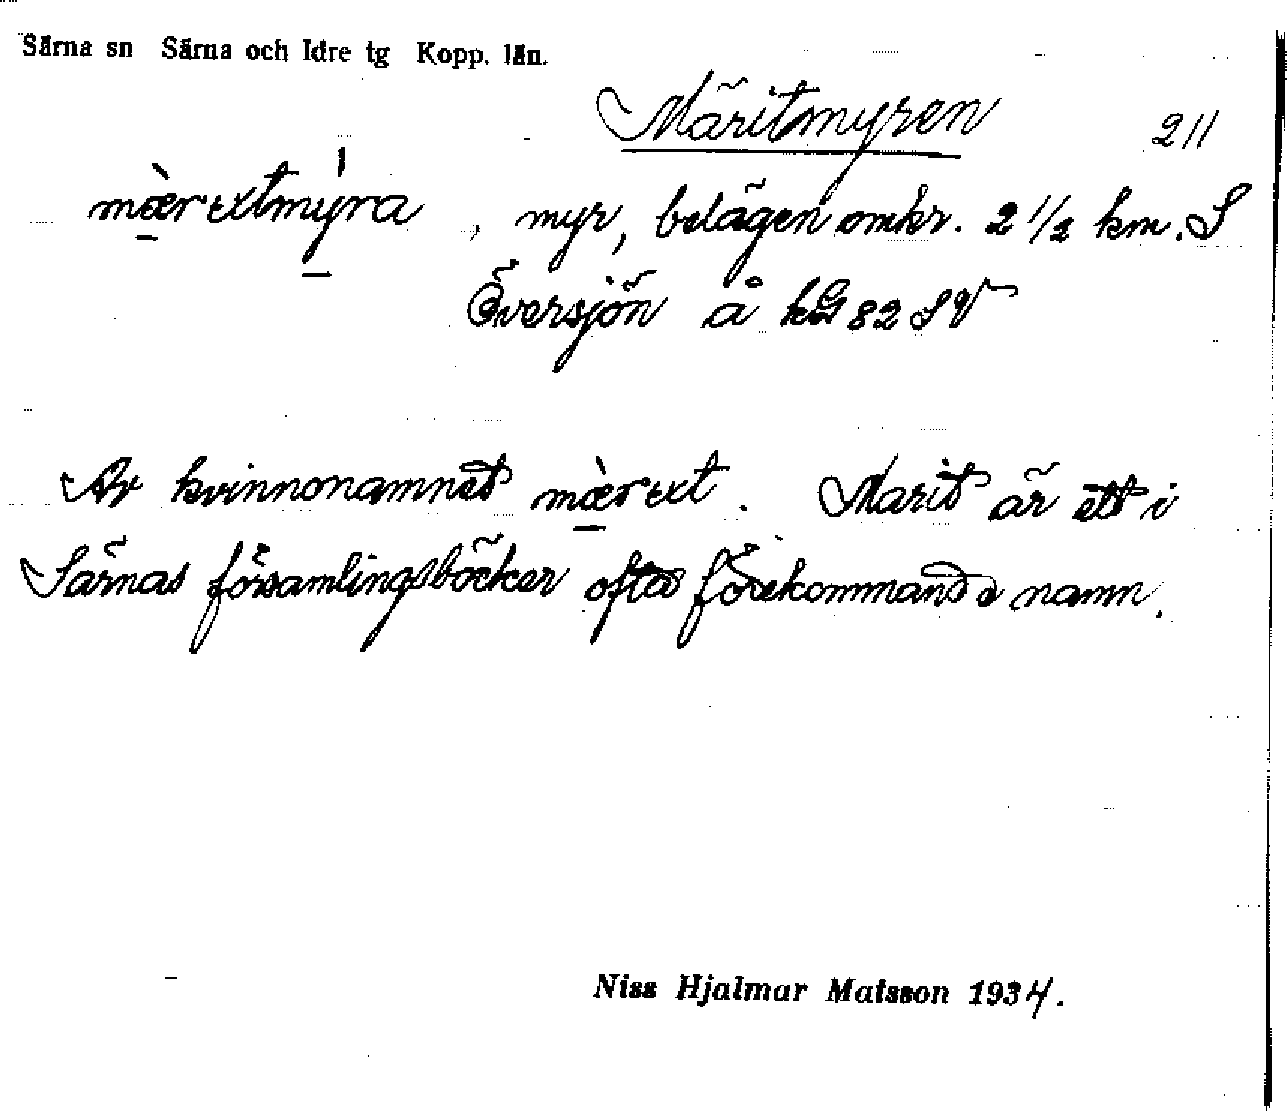 Särna sn Särna och Idre tg Kopp. län.
Märitmyren 211
mærıtmýra, myr, belägen omkr. 2 1/2 km. S
Översjön å kbl 82 SV
Av kvinnonamnet mærıt. Marit är ett i
Särnas församlingsböcker ofta förekommande namn.
Niss Hjalmar Matsson 1934.